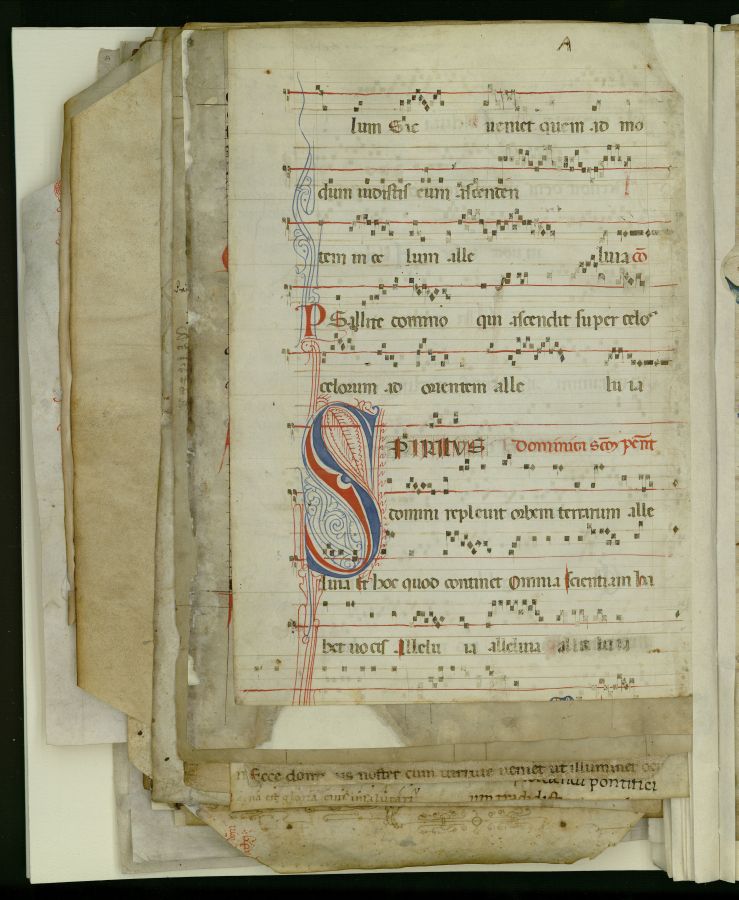 A
lum Sic ueniet quem ad mo
dum uidistis eum ascenden
tem in ce lum alle luia cō
PSallite domino qui ascendit super celos
celorum ad orientem alle lu ia
SPIRITVS Dominica scō pent
domini repleuit orbem terrarum alle
luia Et hoc quod continet Omnia scientiam ha
bet uocis Allelu ia alleluia alle lu ia
Ecce dom us noster cum uirtute ueniet ut illuminet oc
pontifici